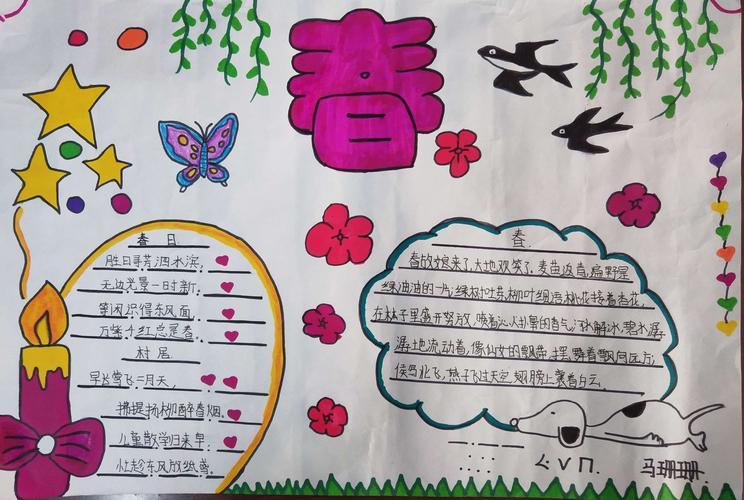 春
春日
胜日寻芳泗水滨,
无边光景一时新。
等闲识得东风面,
万紫千红总是春。
村居
草长莺飞二月天,
拂提扬柳醉春烟。
儿童散学归来早,
忙趁东风放纸鸢。
春
春故娘来了,大地欢笑了,麦苗返青,遍野是
绿油油的一片,绿树吐芽,柳叶细,桃花接着杏花,
在林子里盛开努放,喷着沁人的香气,冰解冰,碧水潺
潺地流动着,像仙女的飘带,摆舞着飘向远方,
候鸟北飞,燕子飞过天空,翅膀上裹着白云。
马珊珊